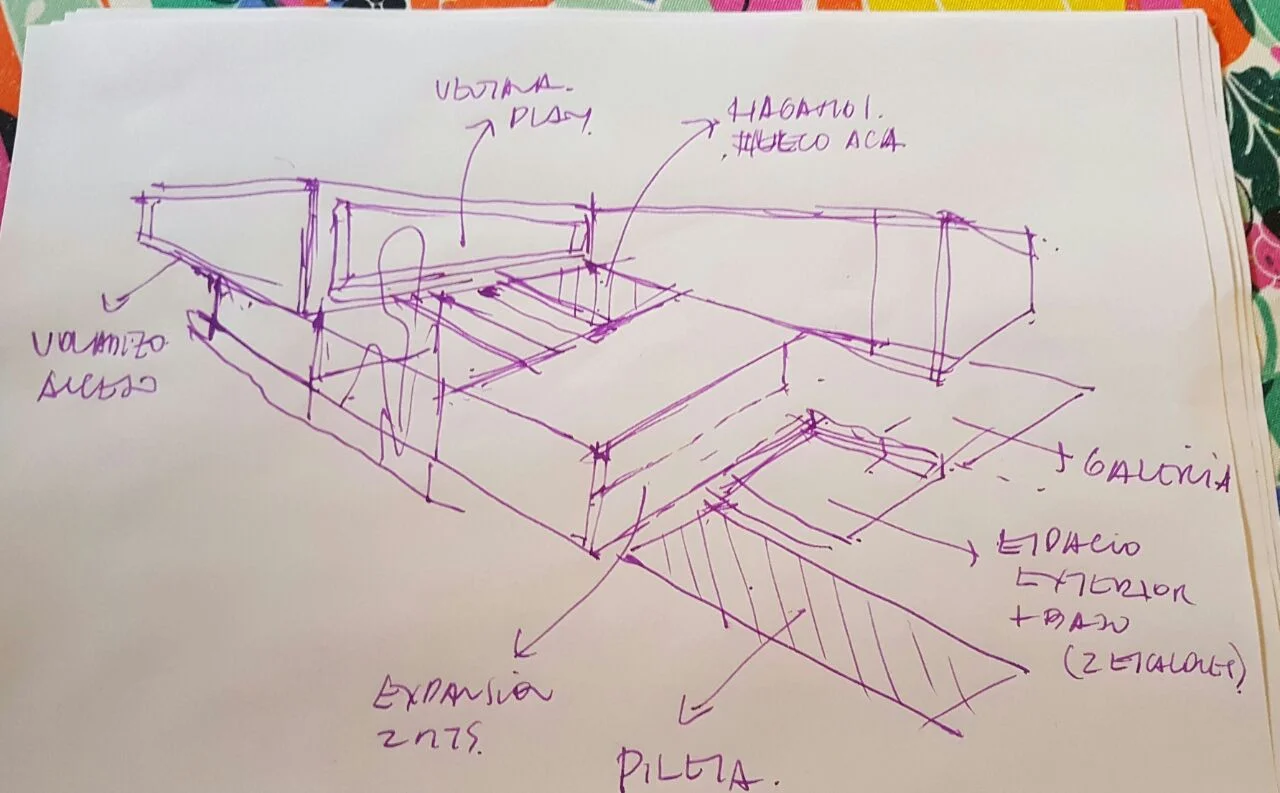 VENTANA.
PLAY.
HAGAMOS.
HUECO ACA
VOLADIZO
ACCESO
GALERIA
ESPACIO
EXTERIOR
+ BAJO
(2 ESCALONES)
EXPANSIÓN
2 MTS.
PILETA.